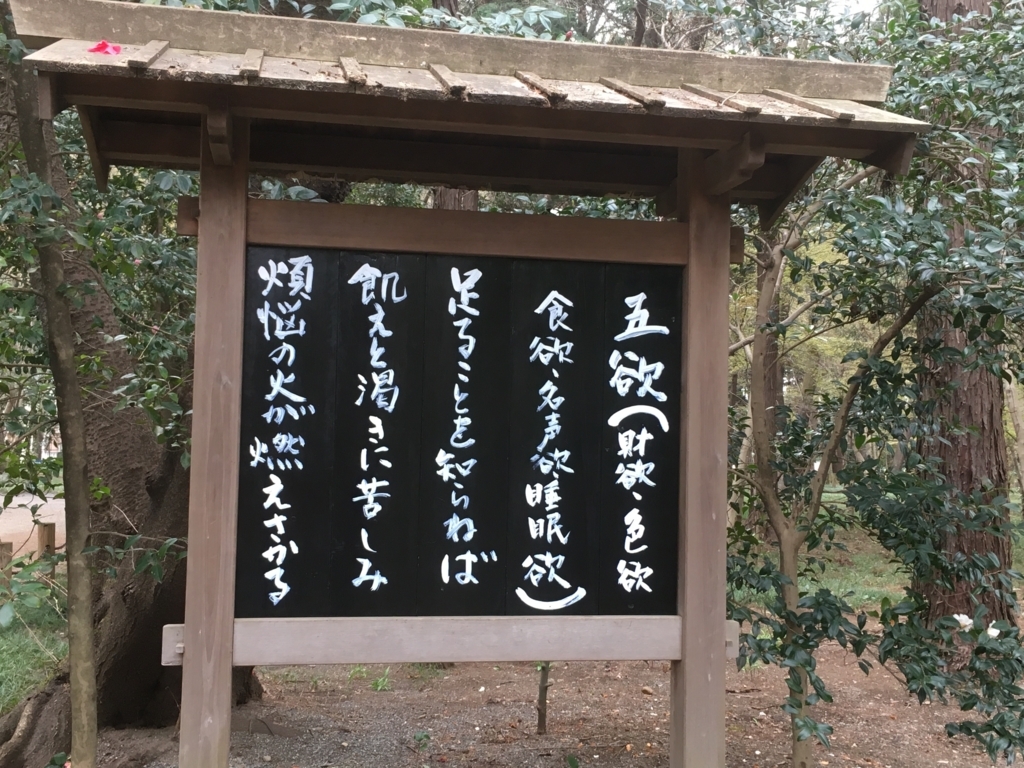 五欲（財欲、色欲
食欲、名声欲睡眠欲）
足ることを知らねば
飢えと渇きに苦しみ
煩悩の火が燃えさかる